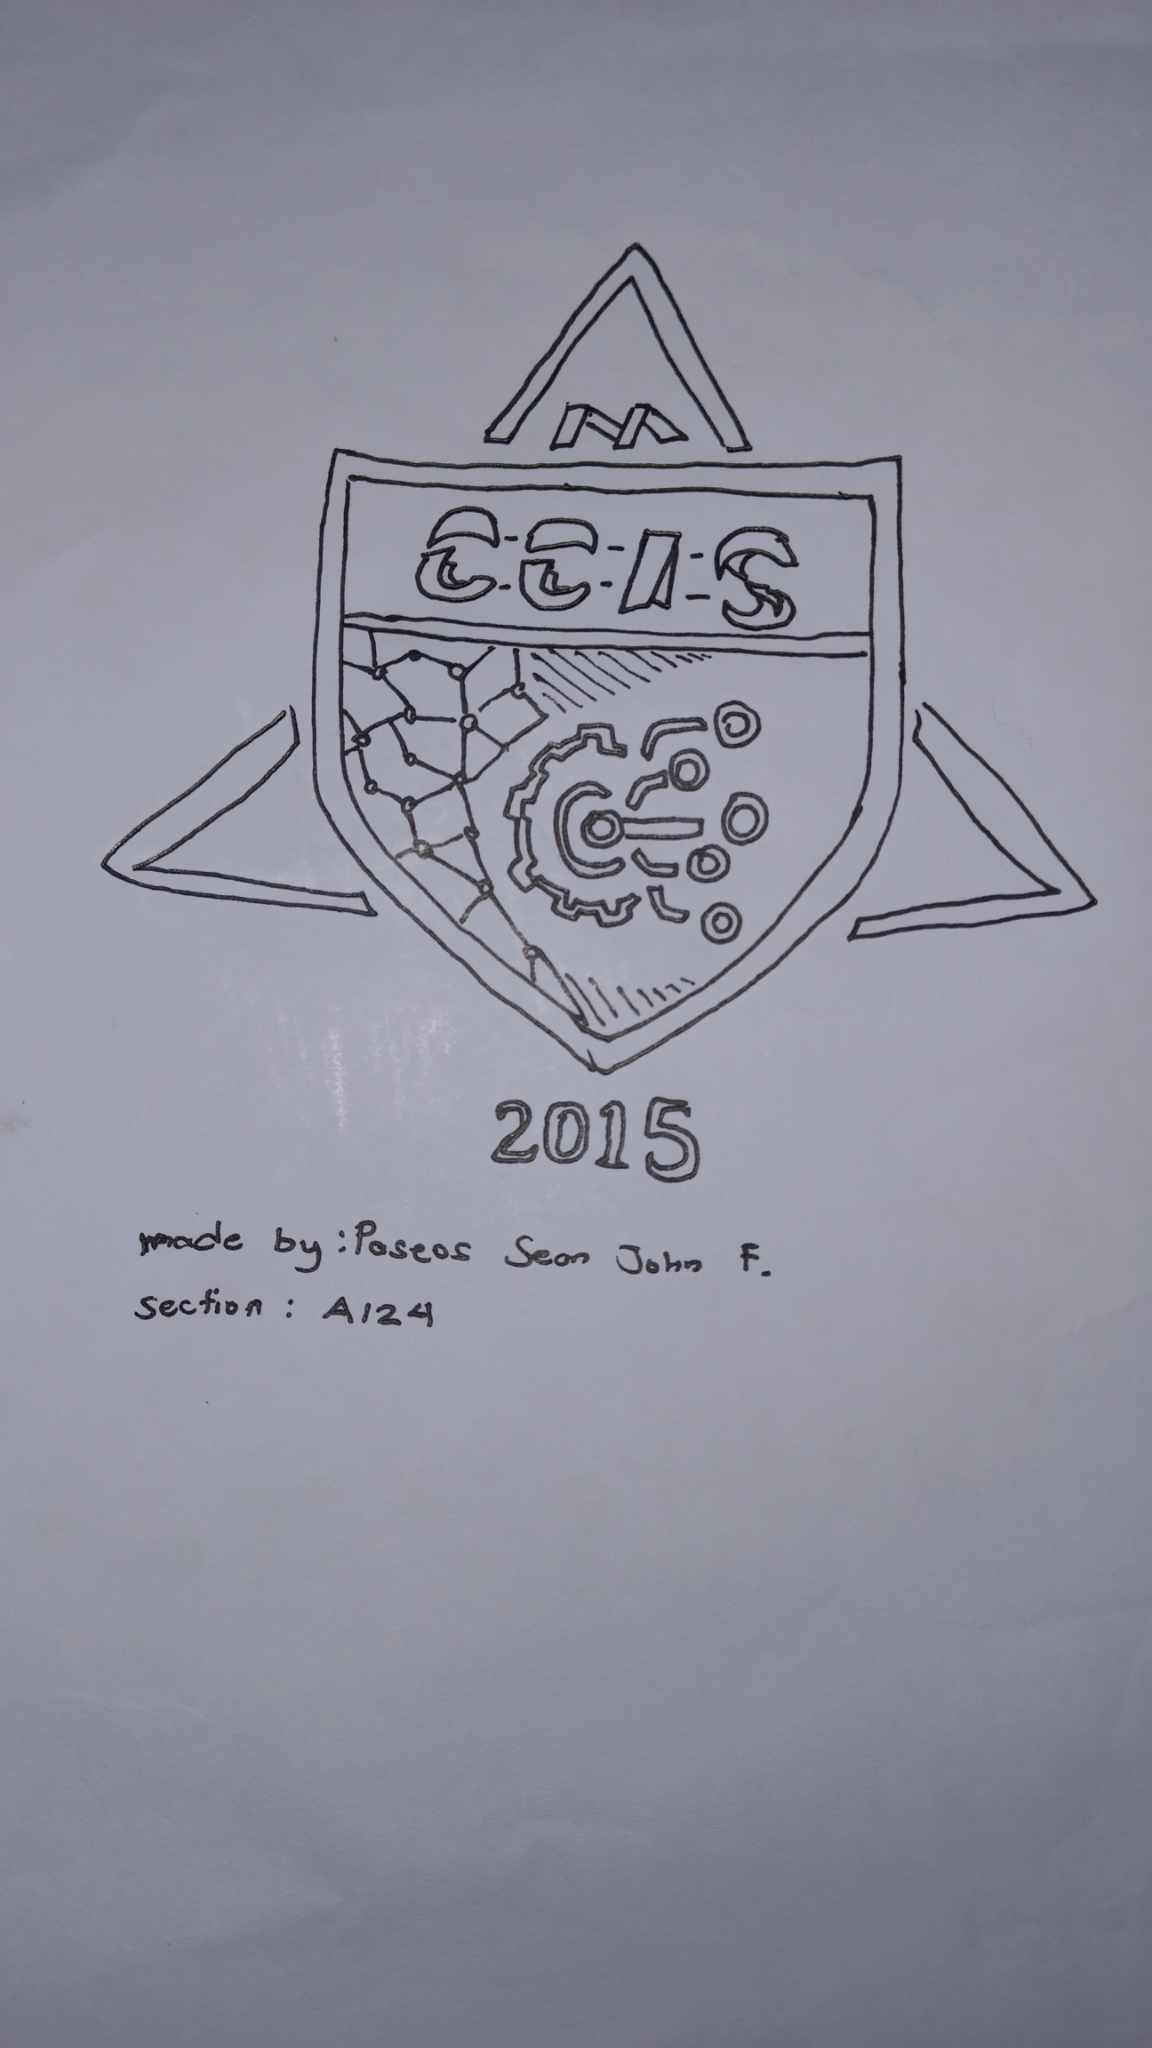 M
C-C-I-S
2015
made by: Paseos Sean John F.
section: A124